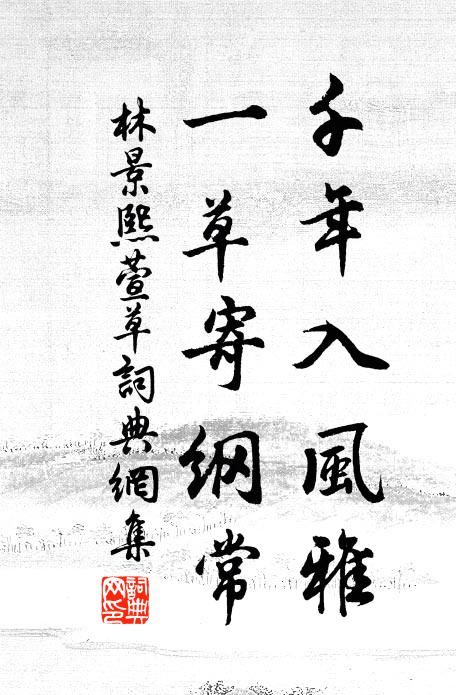 千年入風雅
一草寄綱常
林景熙萱草詞典網集
詞典網印